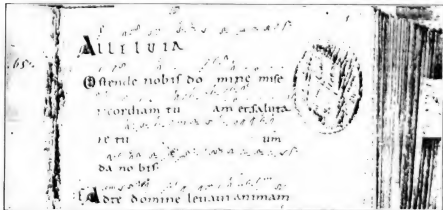 65.
ALLELUIA
Ostende nobis do mine mise
ricordiam tu am et saluta
re tu um
da no bis
Adte domine levavi animam